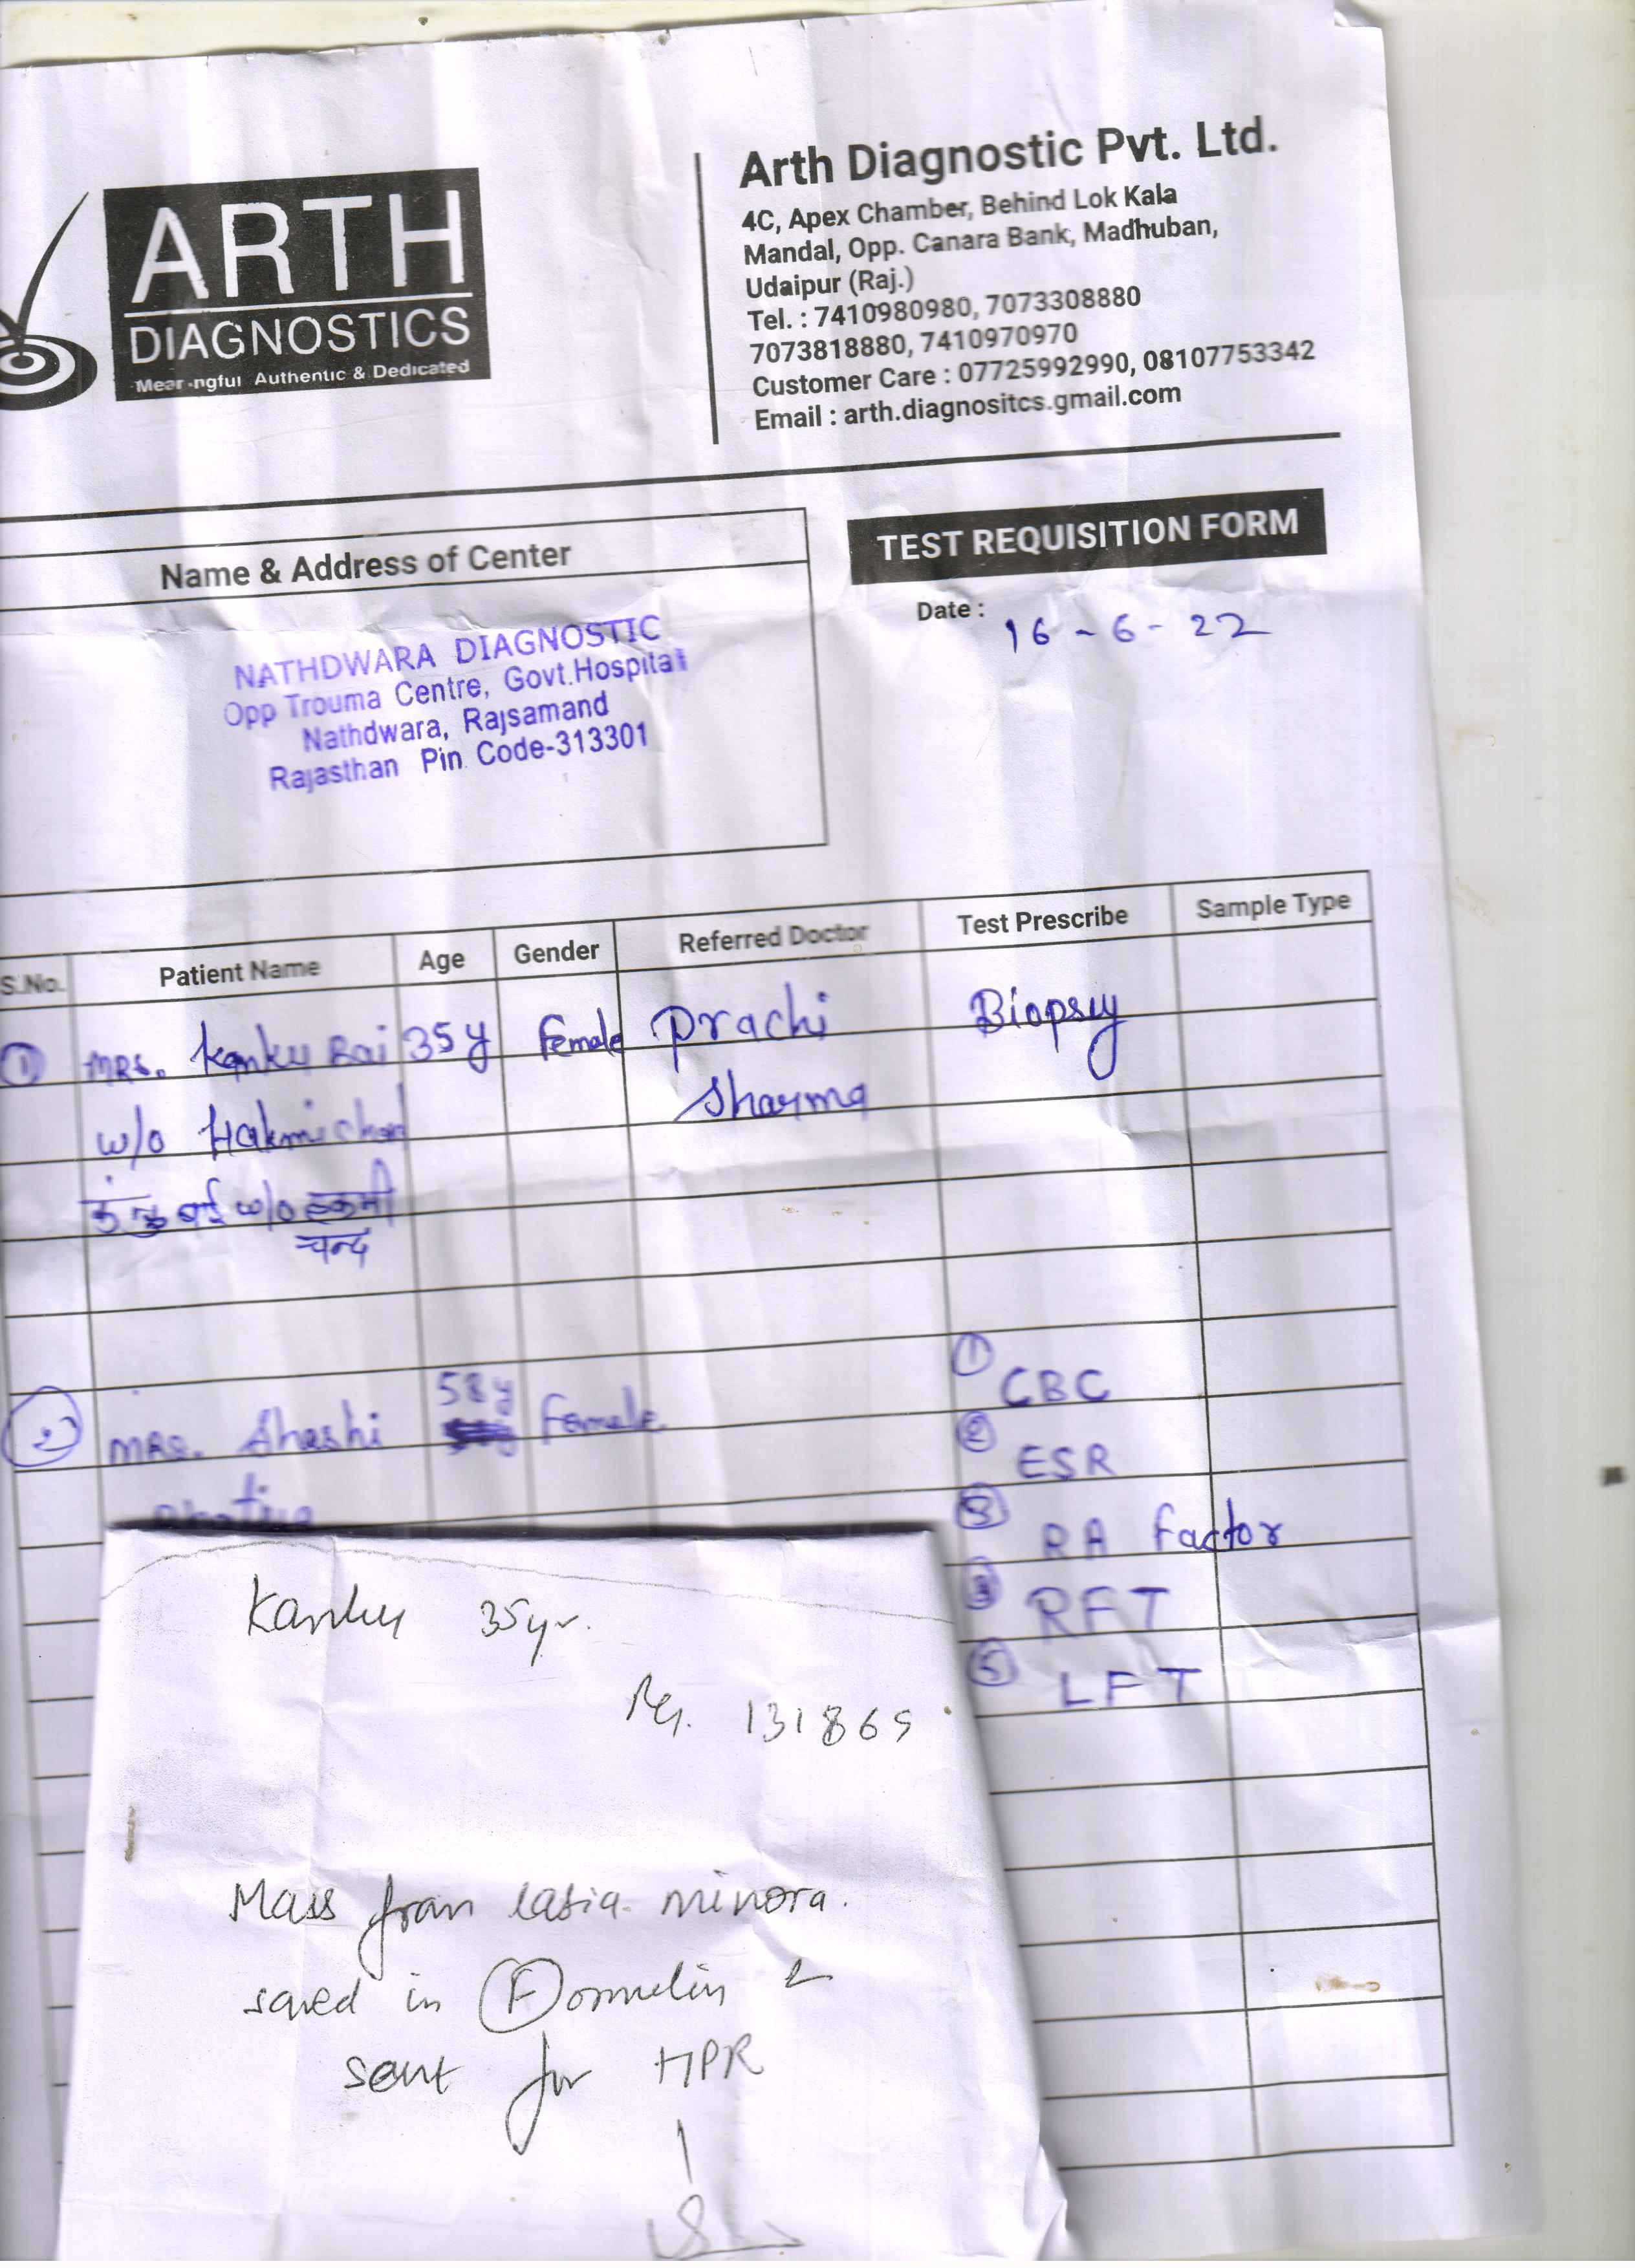 ARTH
DIAGNOSTICS
Meaningful Authentic & Dedicated
Arth Diagnostic Pvt. Ltd.
4C, Apex Chamber, Behind Lok Kala
Mandal, Opp. Canara Bank, Madhuban,
Udaipur (Raj.)
Tel. : 7410980980, 7073308880
7073818880, 7410970970
Customer Care : 07725992990, 08107753342
Email : arth.diagnositcs.gmail.com
Name & Address of Center
TEST REQUISITION FORM
Date : 16-6-22
NATHDWARA DIAGNOSTIC
Opp Trouma Centre, Govt.Hospital
Nathdwara, Rajsamand
Rajasthan Pin Code-313301
S.No. Patient Name Age Gender Referred Doctor Test Prescribe Sample Type
① MRS. Kanku Bai 35y Female Prachi Biopsy
w/o Hakmichand Sharma
कंकु बाई w/o हकमी
चन्द
① CBC
② MRS. Shashi 58y Female
② ESR
③ RA factor
RFT
⑤ LFT
Kanku 35yr.
131865
Mass from labia minora.
saved in Formelin &
sent for HPR